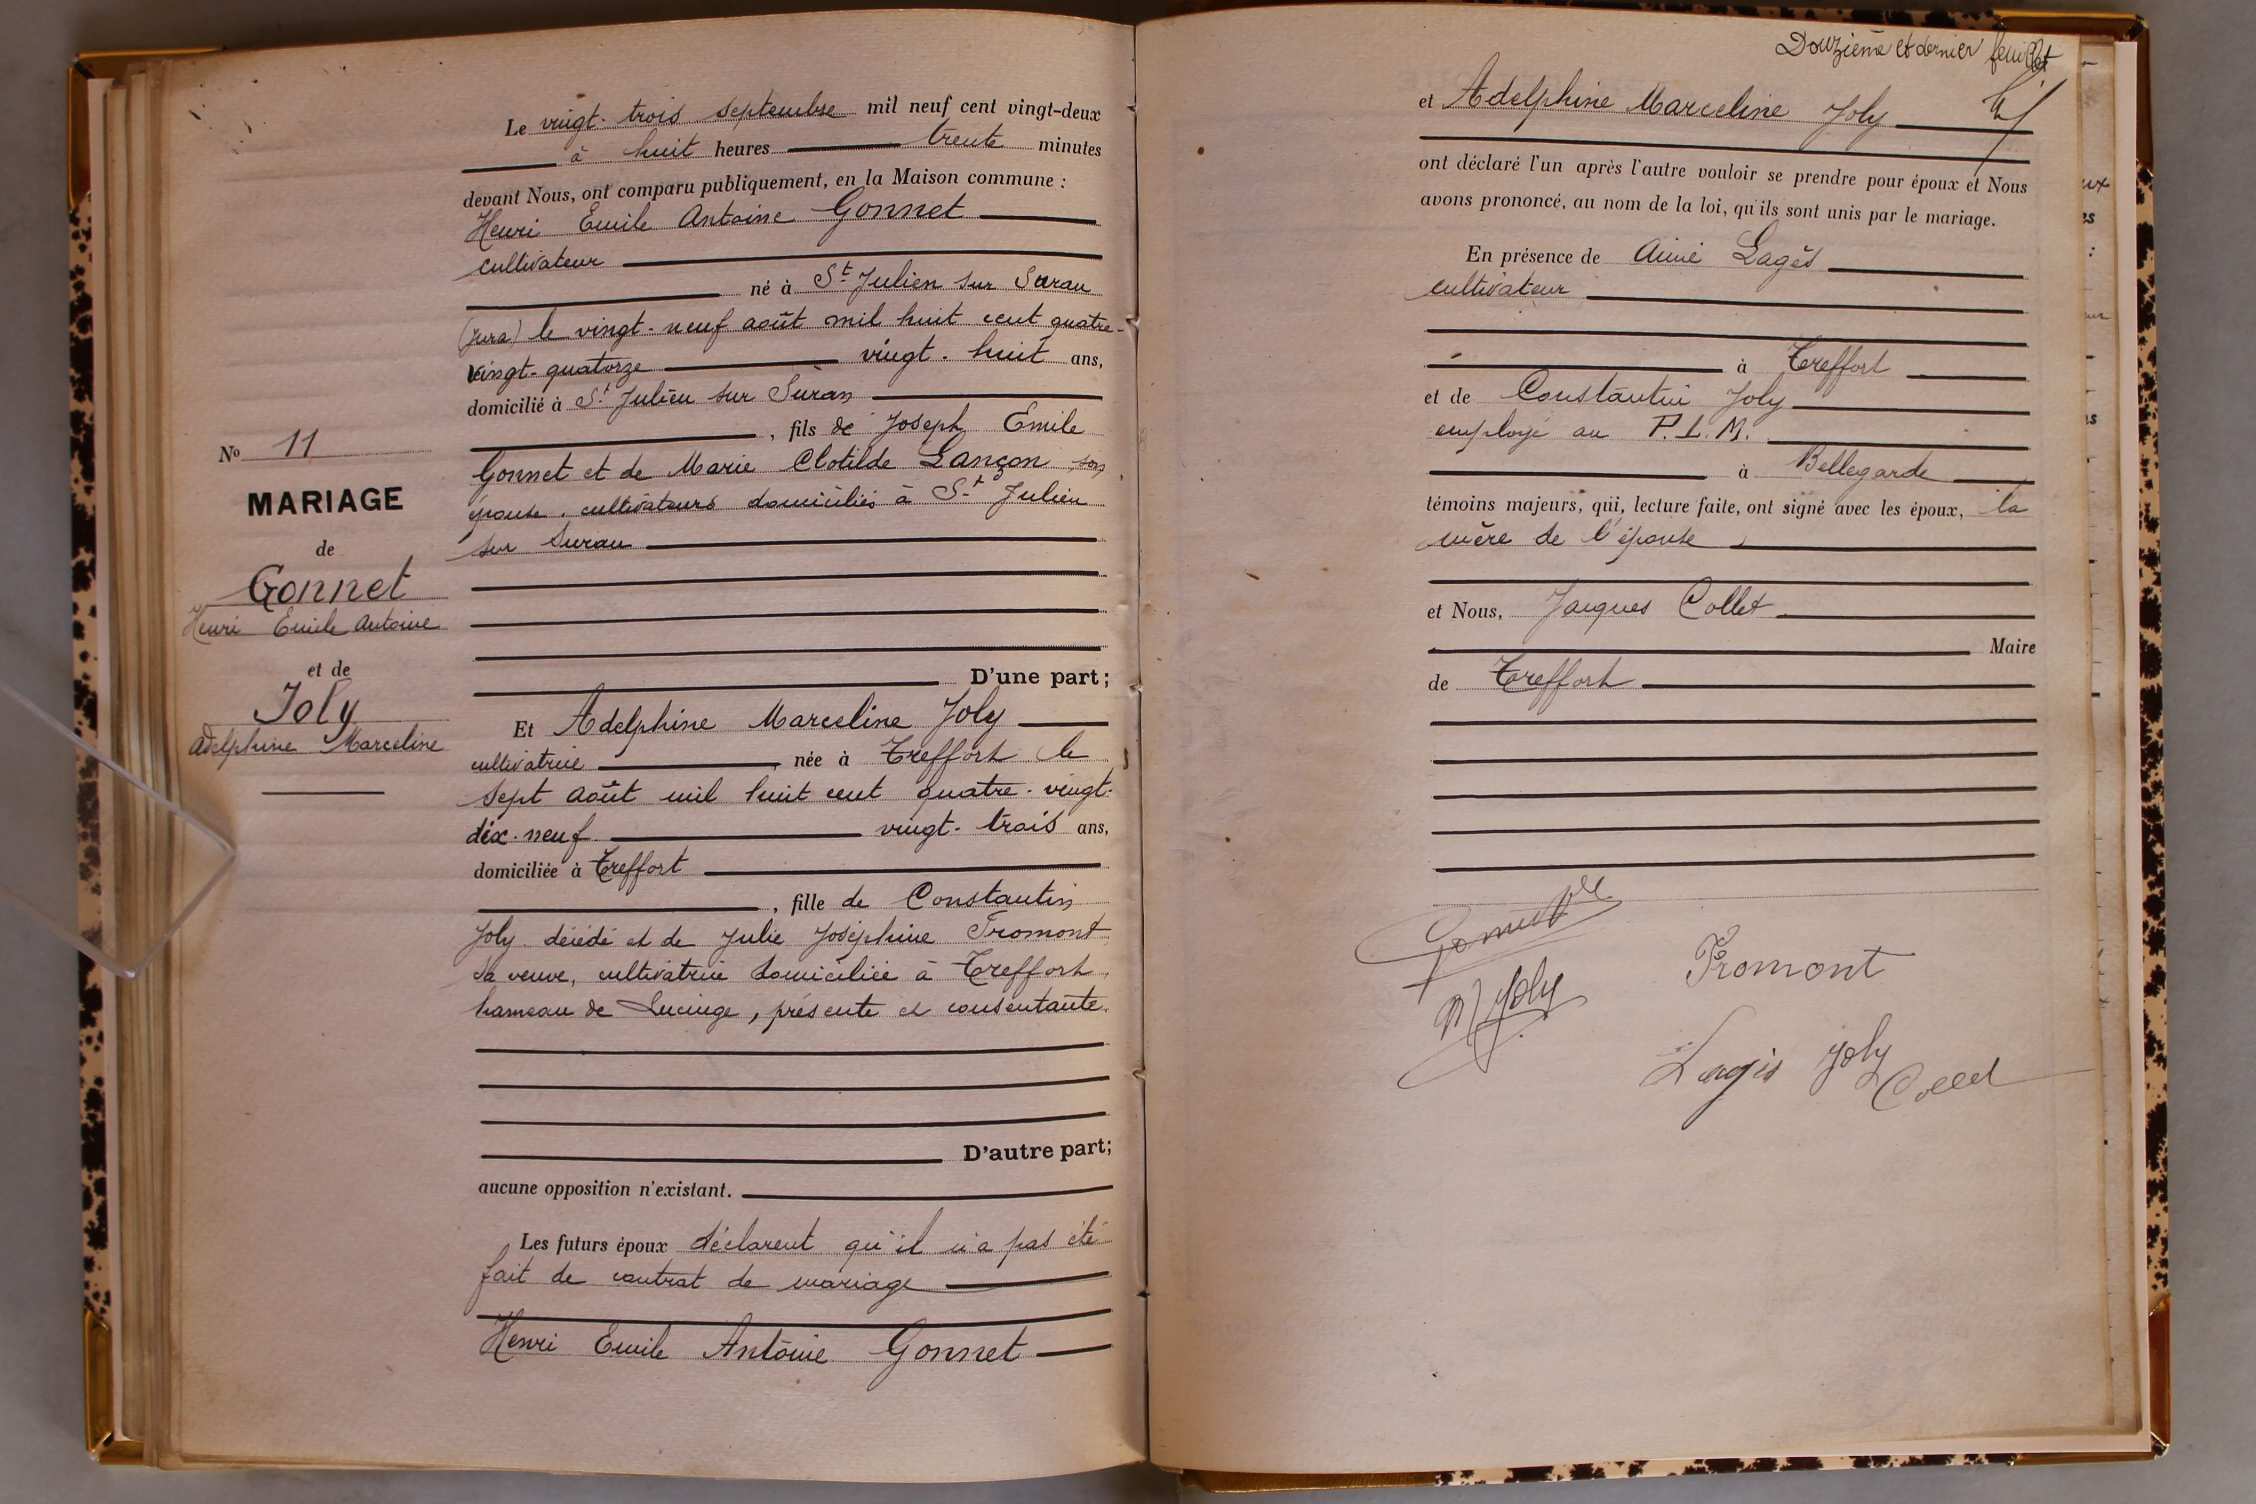 N° 11
MARIAGE
de
Gonnet
Henri Emile Antoine
et de
Joly
Adelphine Marceline
Le vingt-trois septembre mil neuf cent vingt-deux
à huit heures trente minutes
devant Nous, ont comparu publiquement, en la Maison commune :
Henri Emile Antoine Gonnet
cultivateur
né à St Julien sur Suran
(Jura) le vingt-neuf août mil huit cent quatre-
vingt-quatorze vingt-huit ans,
domicilié à St Julien sur Suran
, fils de Joseph Emile
Gonnet et de Marie Clotilde Lançon son
épouse, cultivateurs domiciliés à St Julien
sur Suran
D'une part;
Et Adelphine Marceline Joly
cultivatrice, née à Treffort le
sept août mil huit cent quatre-vingt-
dix-neuf vingt-trois ans,
domiciliée à Treffort
, fille de Constantin
Joly décédé et de Julie Joséphine Fromont
sa veuve, cultivatrice domiciliée à Treffort,
hameau de Lucinge, présente et consentante.
D'autre part;
aucune opposition n'existant.
Les futurs époux déclarent qu'il n'a pas été
fait de contrat de mariage
Henri Emile Antoine Gonnet
Douzième et dernier feuillet
et Adelphine Marceline Joly
ont déclaré l'un après l'autre vouloir se prendre pour époux et Nous
avons prononcé, au nom de la loi, qu'ils sont unis par le mariage.
En présence de Aimé Lagès
cultivateur
à Treffort
et de Constantin Joly
employé au P.L.M.
à Bellegarde
témoins majeurs, qui, lecture faite, ont signé avec les époux, la
mère de l'épouse,
et Nous, Jacques Collet
Maire
de Treffort
Gonnet
Fromont
M Joly
Lagès Joly
Collet